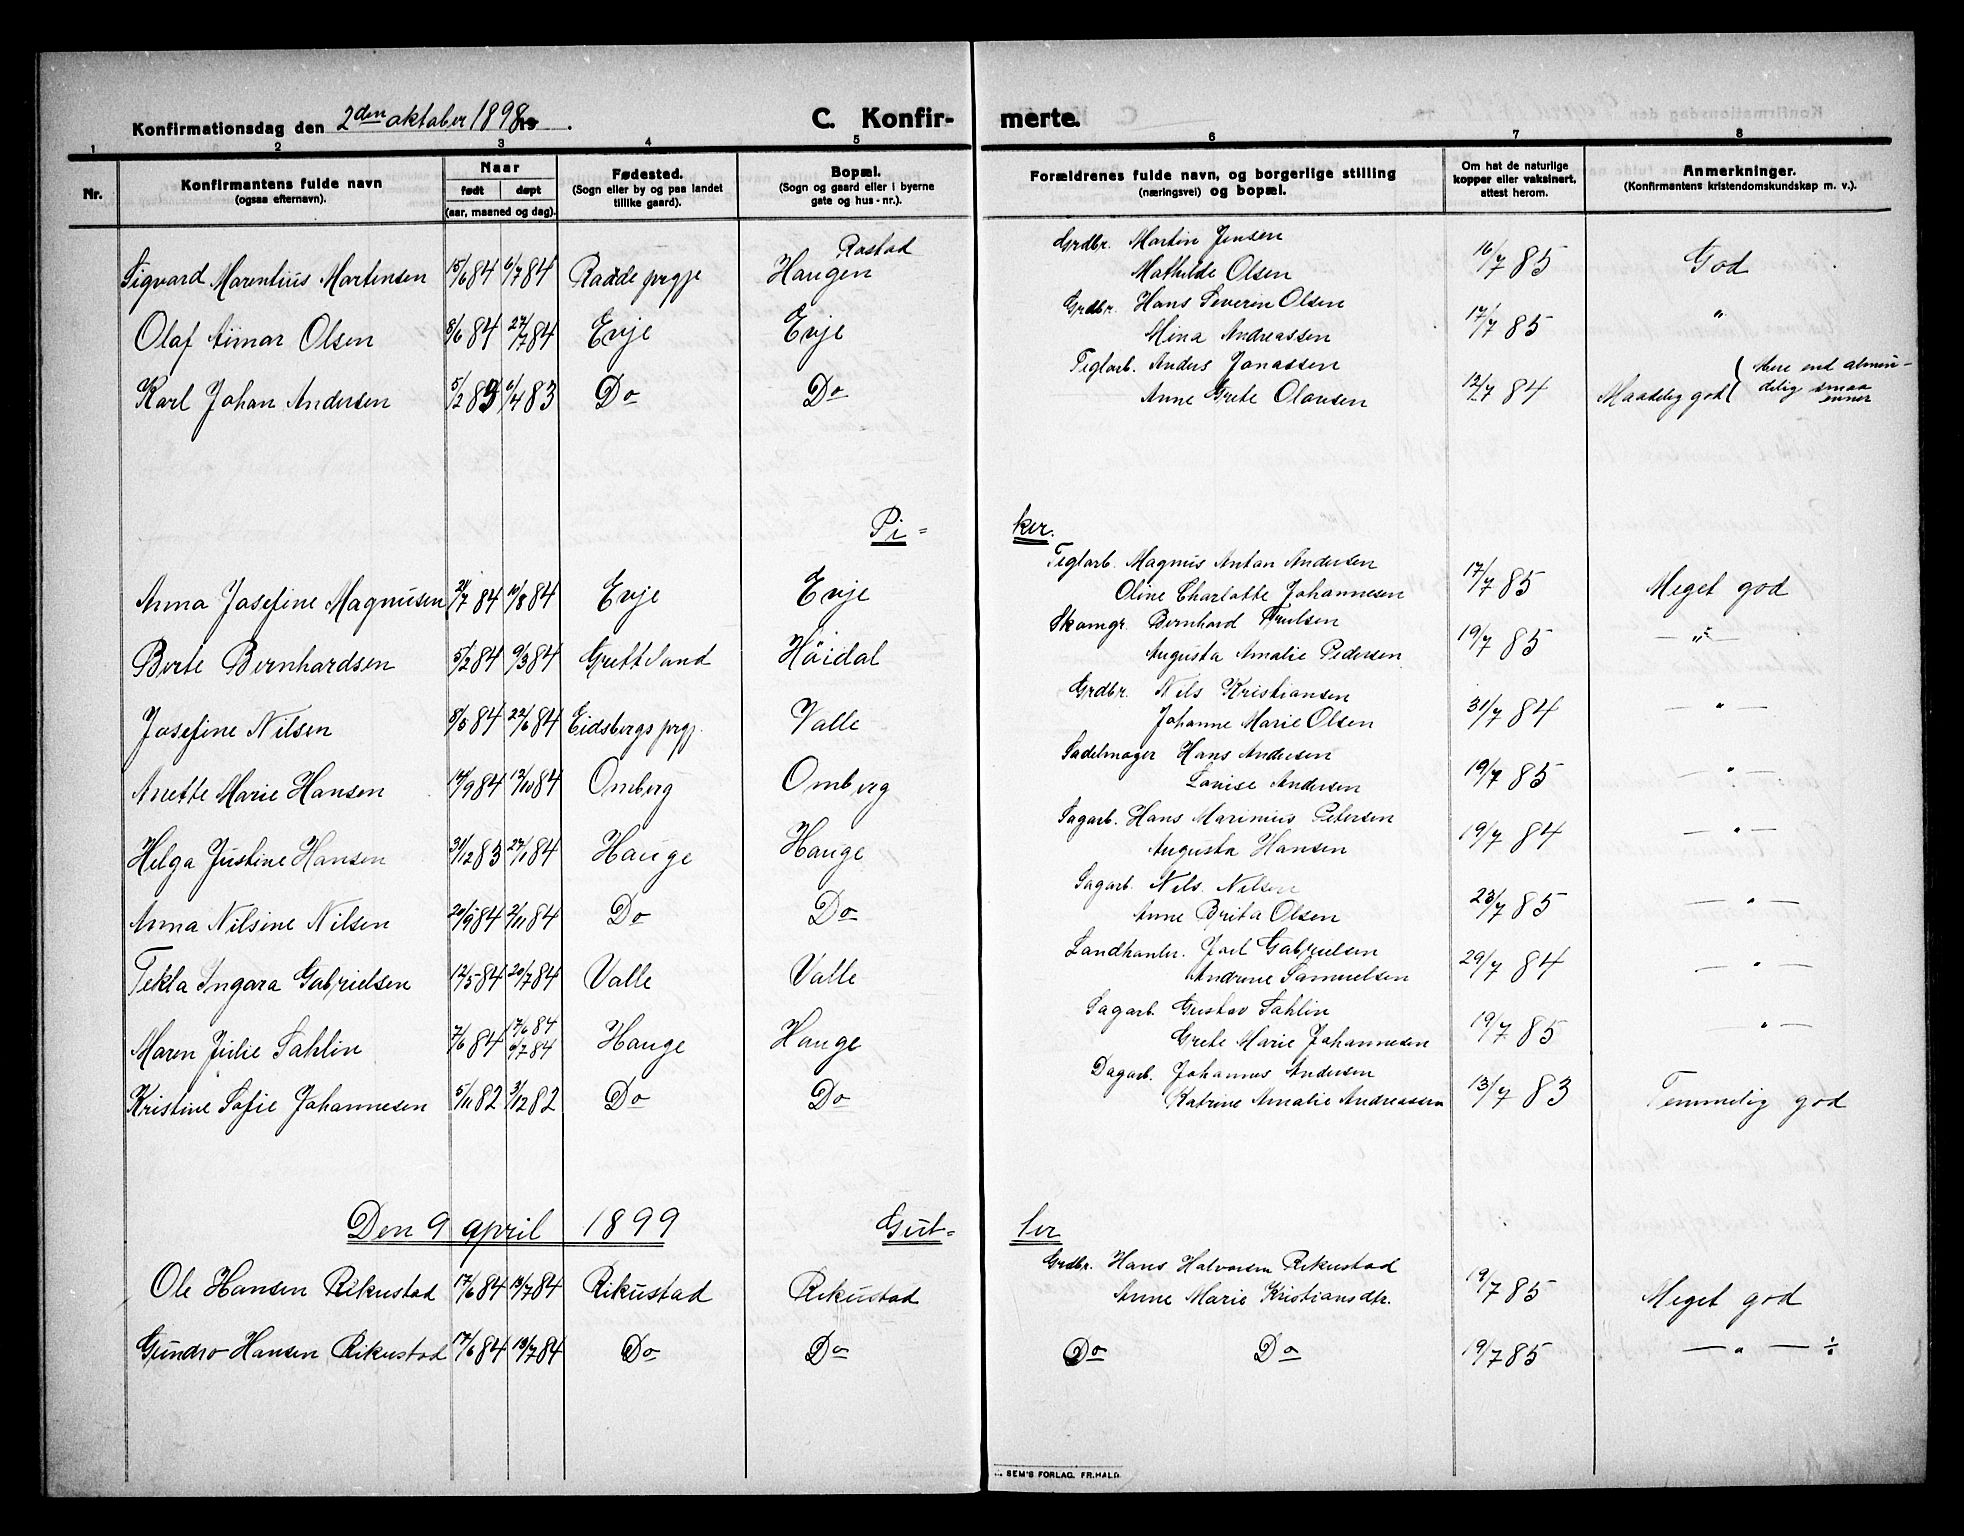 Konfirmationsdag den 2den oktober 1898 19 .
C. Konfir- merte.
1 2 3 4 5 6 7 8
Nr.
Konfirmantens fulde navn
(ogsaa efternavn).
Naar
født døpt
(aar, maaned og dag).
Fødested.
(Sogn eller by og paa landet
tillike gaard).
Bopæl.
(Sogn og gaard eller i byerne
gate og hus-nr.).
Forældrenes fulde navn, og borgerlige stilling
(næringsvei) og bopæl.
Om hat de naturlige
kopper eller vaksinert,
attest herom.
Anmerkninger.
(Konfirmantens kristendomskundskap m. v.).
Rostad Grdbr. Martin Jensen
Sigvard Marentius Martensen 15/6 84 6/7 84 Radde prgje Haugen Mathilde Olsen 16/7 85 God
Grdbr. Hans Severin Olsen
Olaf Aimar Olsen 8/6 84 27/7 84 Evje Evje Mina Andreassen 17/7 85 "
Teglarb. Anders Jonassen
Karl Johan Andersen 5/2 83 6/4 83 Do Do Anne Grete Olausen 12/7 84 Maadelig god ( Mere end almin-
delig smaa
evner
Pi- ker.
Teglarb. Magnus Anton Andersen
Anna Josefine Magnusen 24/7 84 10/8 84 Evje Evje Oline Charlotte Johannesen 17/7 85 Meget god
Skomgr. Bernhard Truelsen
Berte Bernhardsen 5/2 84 9/3 84 Grettland Höidal Augusta Amalie Pedersen 19/7 85 — " —
Grdbr. Nils Kristiansen
Josefine Nilsen 8/5 84 22/6 84 Eidsbergs prgj. Valle Johanne Marie Olsen 31/7 84 — " —
Sadelmager Hans Andersen
Anette Marie Hansen 14/9 84 12/10 84 Omberg Omberg Lovise Andersen 19/7 85 — " —
Sagarb. Hans Marinius Petersen
Helga Justine Hansen 31/12 83 27/1 84 Hauge Hauge Augusta Hansen 19/7 84 — " —
Sagarb. Nils Nilsen
Anna Nilsine Nilsen 20/9 84 2/11 84 Do Do Anne Brita Olsen 23/7 85 — " —
Landhanler. Joel Gabrielsen
Tekla Ingara Gabrielsen 12/5 84 20/7 84 Valle Valle Andrine Samuelsen 29/7 84 — " —
Sagarb. Gustav Sahlin
Maren Julie Sahlin 7/6 84 17/6 84 6/7 84 Hauge Hauge Grete Marie Johannesen 19/7 85 — " —
Dagarb. Johannes Andersen
Kristine Sofie Johannesen 5/11 82 3/12 82 Do Do Katrine Amalie Andreassen 13/7 83 Temmelig god
Den 9 april 1899 Gut- ter
Grdbr. Hans Halvorsen Rikustad
Ole Hansen Rikustad 17/6 84 13/7 84 Rikustad Rikustad Anne Marie Kristiansdtr. 19/7 85 Meget god
Gundro Hansen Rikustad 17/6 84 13/7 84 Do Do Do Do 19/7 85 — " — ÷
SEM'S FORLAG, FR.HALD.